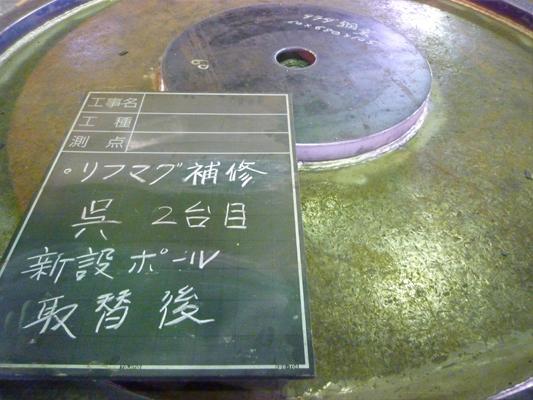 工事名
工種
測点
・リフマグ補修
呉 2台目
新設ポール
取替後